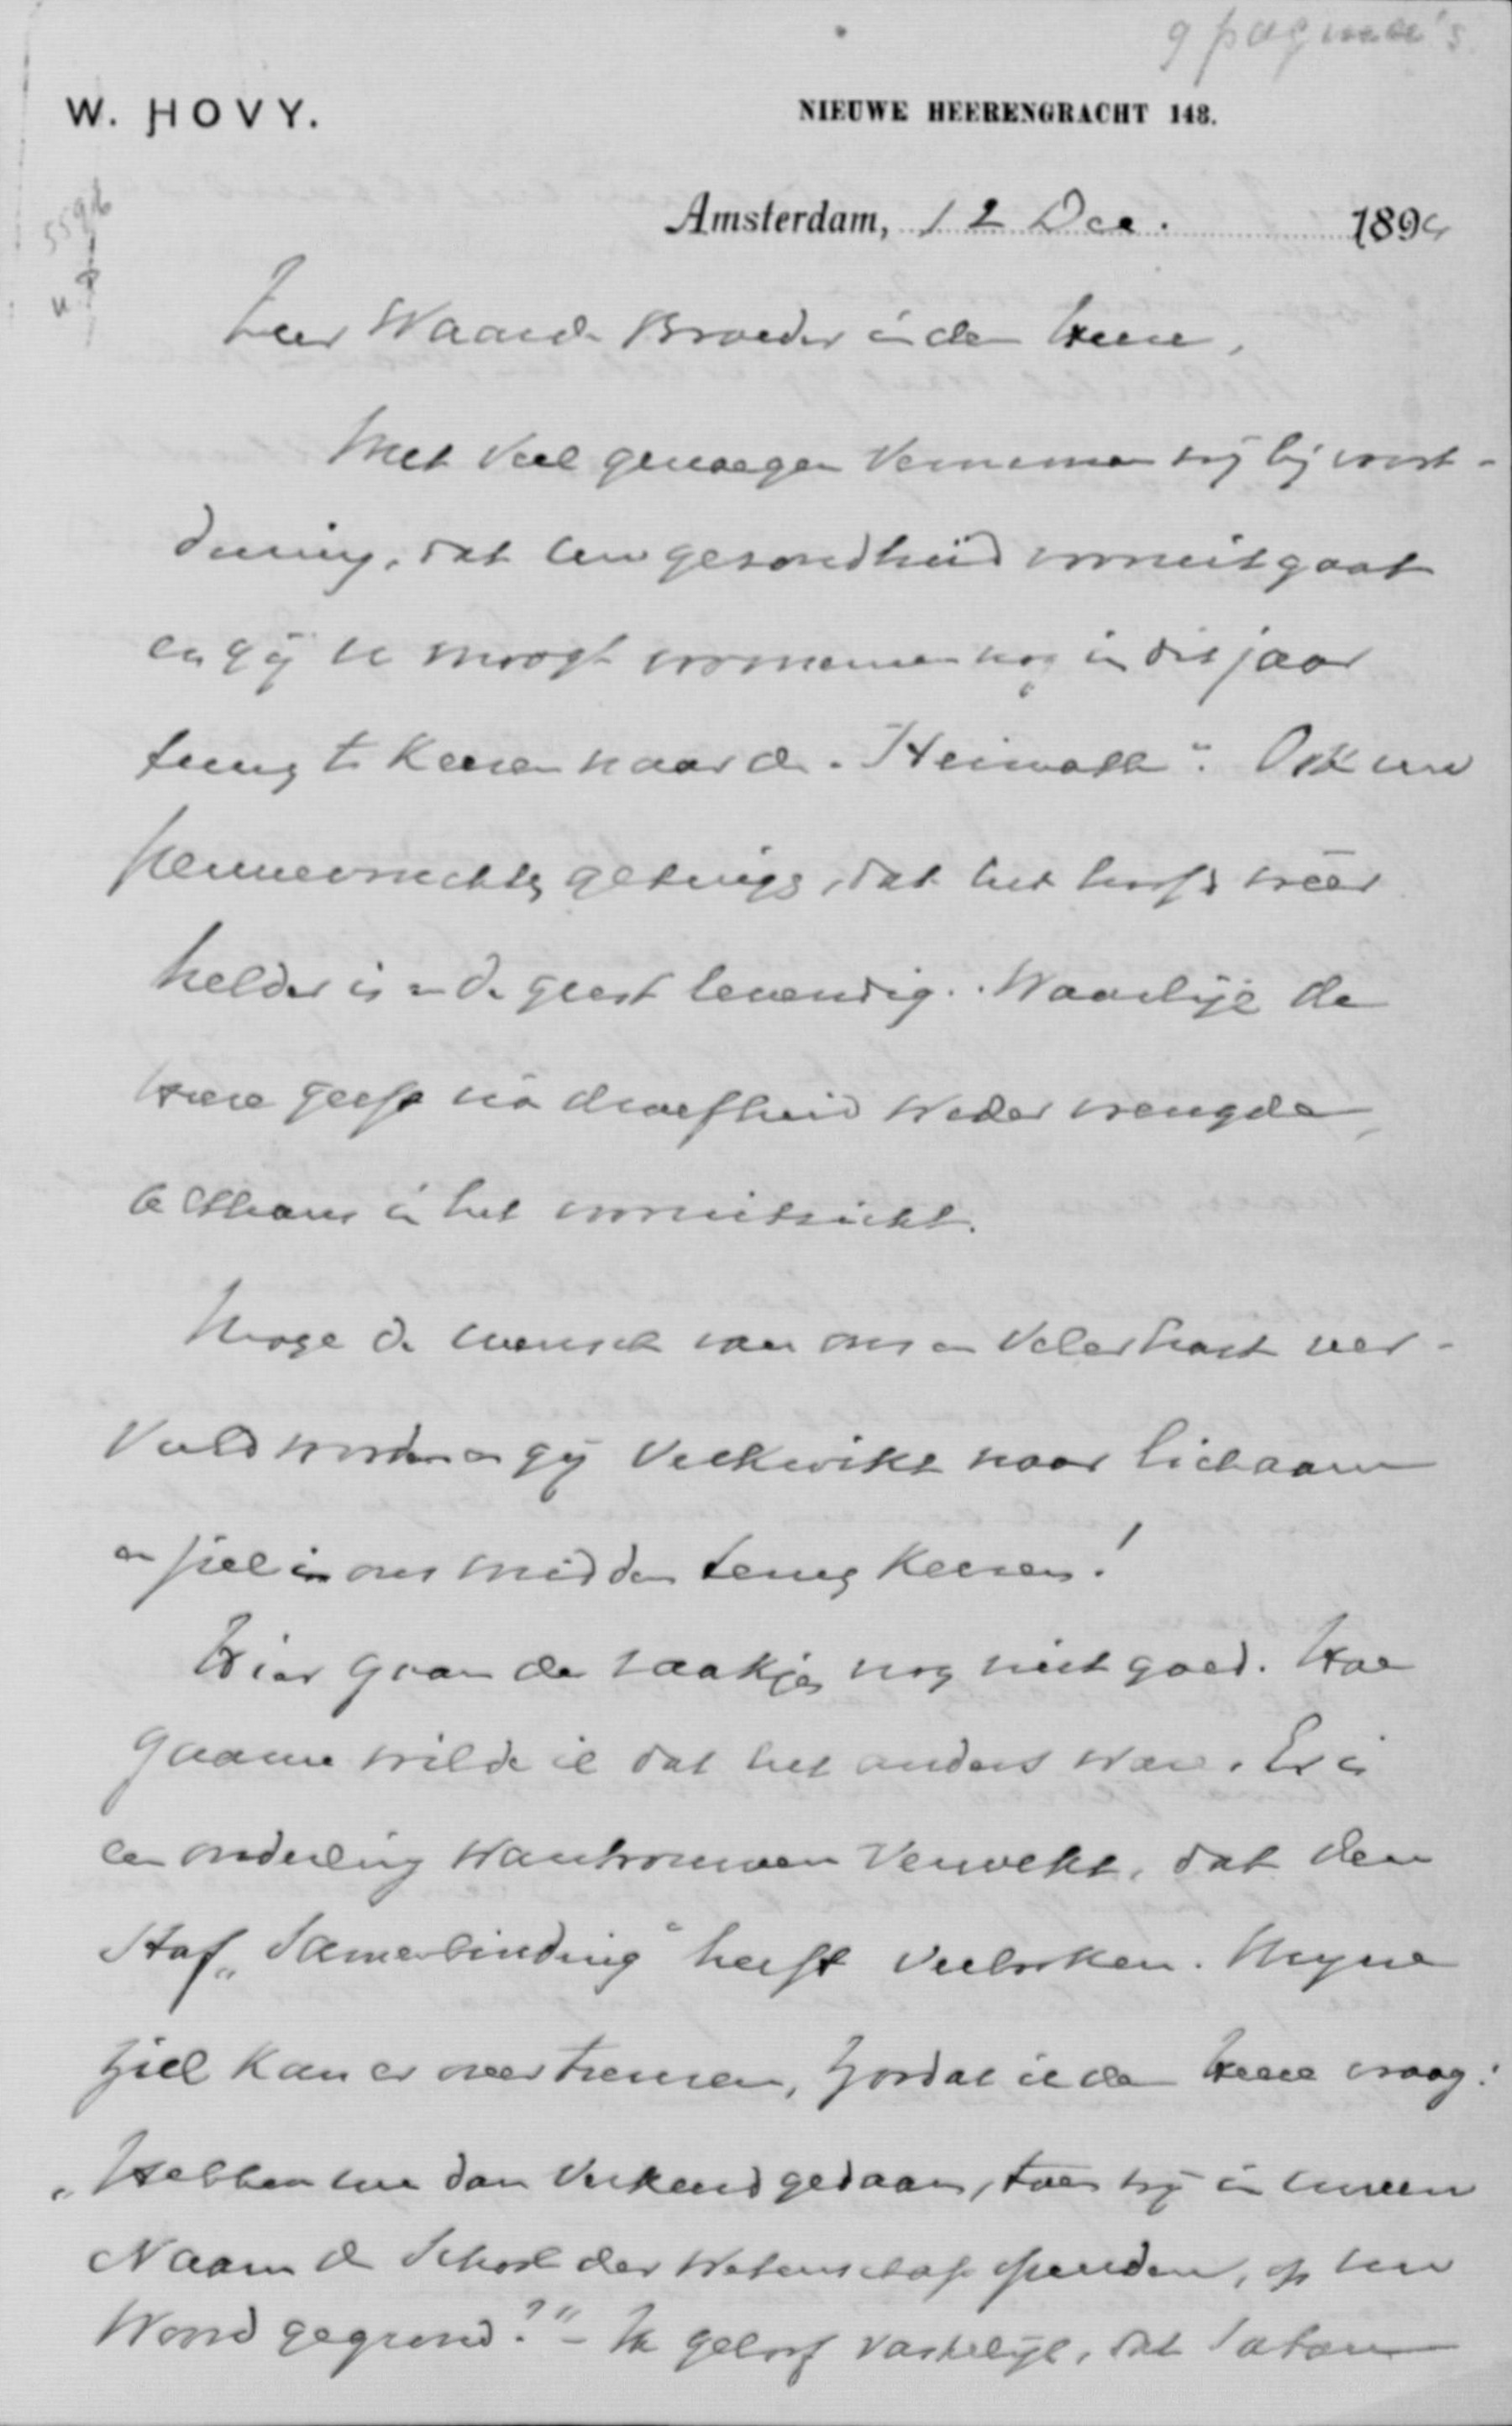 9 pagina's
W. HOVY.
NIEUWE HEERENGRACHT 148.
Amsterdam, 12 Dec. 1894
5596
Zeer Waarde Broeder in den Heere,
Met veel genoegen vernemen wij bij voort-
during, dat Uw gezondheid vooruitgaat
en gij U moogt voornemen nog in dit jaar
terug te keeren naar de "Heimath". Ook uw
pennevruchten getuigt, dat het hoofd weêr
helder is en de geest levendig. Waarlijk de
Heere geeft nà droefheid weder vreugde,
althans in het vooruitzicht.
Moge de wensch van ons en veler hart ver-
vuld worden en gij verkwikt naar lichaam
en ziel in ons midden terug keeren!
Hier gaan de zaakjes nog niet goed. Hoe
gaarne wilde ik dat het anders ware. Er is
een onderling wantrouwen verwekt, dat den
Staf "Samenbinding" heeft verbroken. Mijne
ziel kan er over treuren, zoodat ik den Heere vraag:
"Hebben we dan verkeerd gedaan, toen wij in Uwen
Naam de School der Wetenschap openden, op Uw
Woord gegrond?" - Ik geloof vastelijk, dat Satan